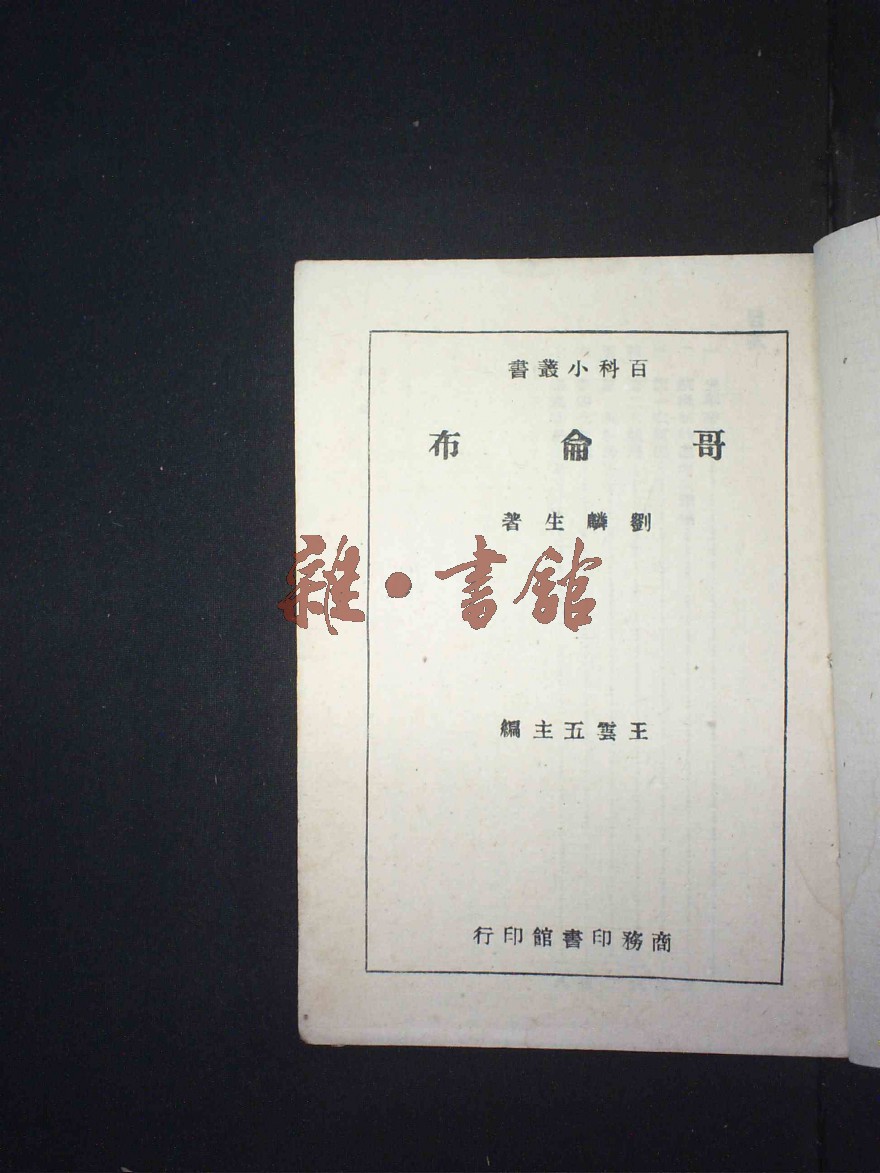 百科小叢書
哥侖布
劉麟生著
雜·書館
王雲五主編
商務印書館印行